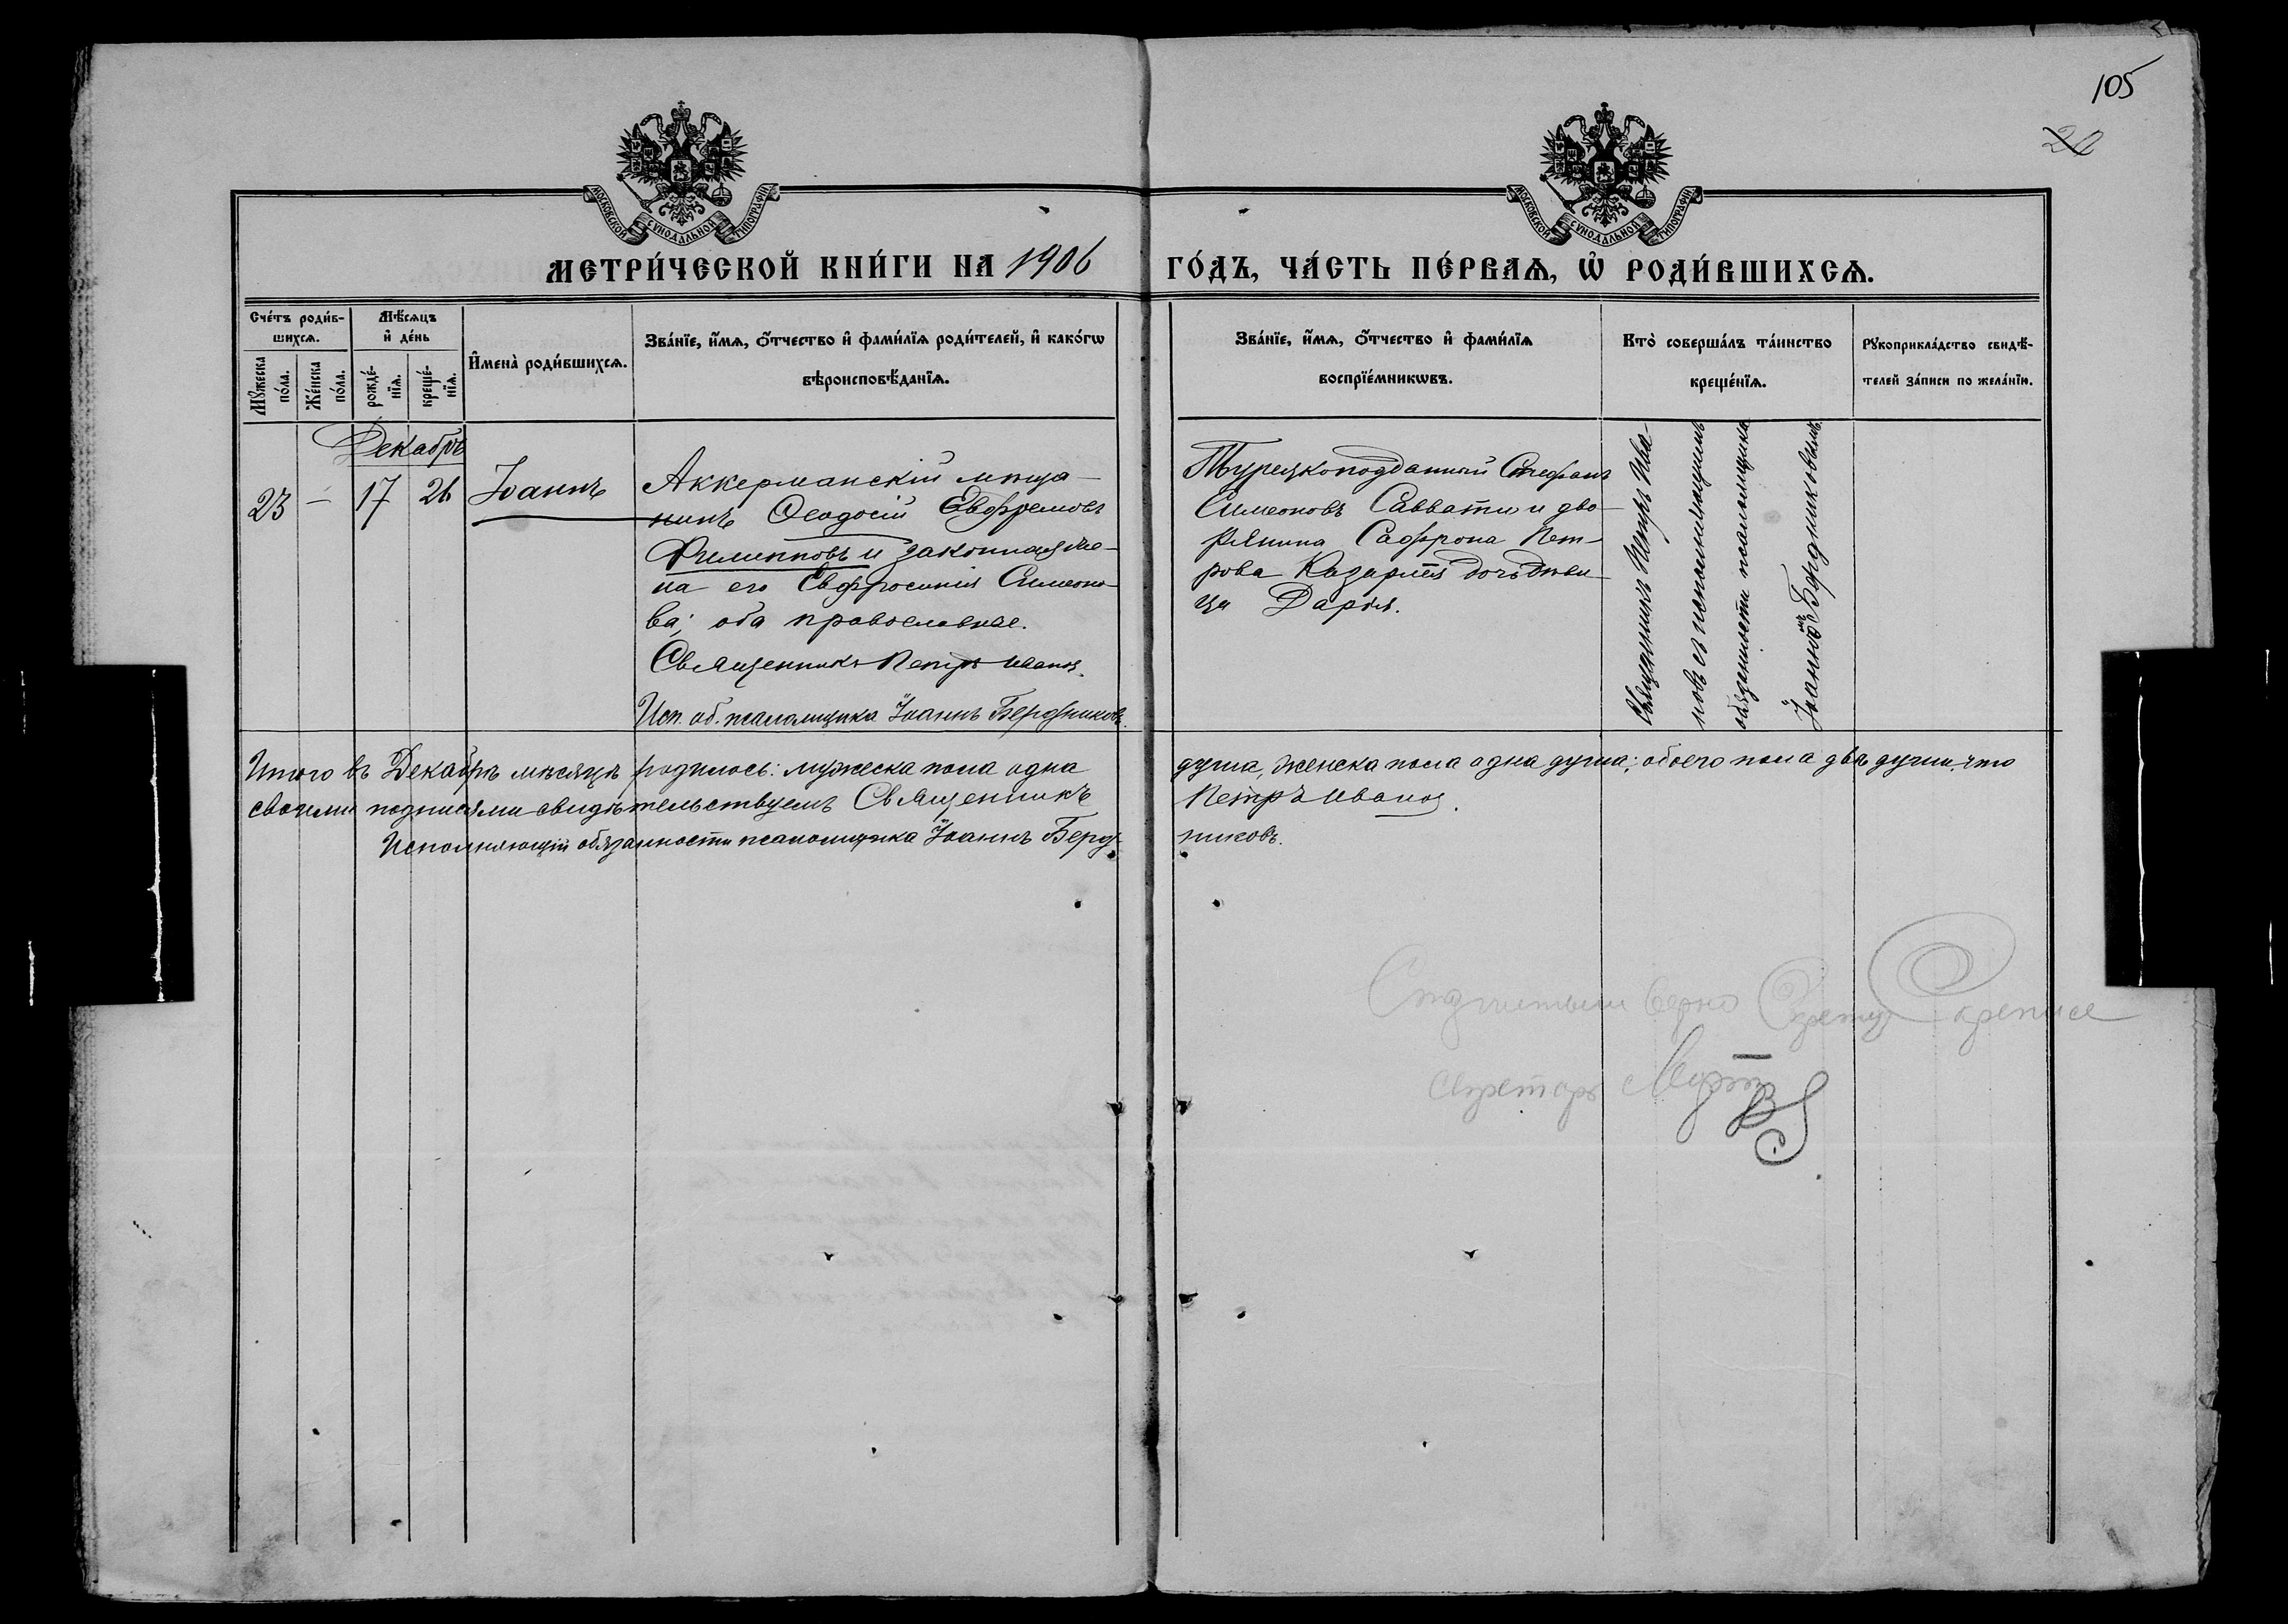 105
20
МОСКОВСКОЙ СѴНОДАЛЬНОЙ ТИПОГРАФІИ
МОСКОВСКОЙ СѴНОДАЛЬНОЙ ТИПОГРАФІИ
МЕТРИ́ЧЕСКОЙ КНИ́ГИ НА 1906 ГО́ДЪ, ЧА́СТЬ ПЕ́РВАѦ, Ѡ҆ РОДИ́ВШИХСѦ.
Сче́тъ роди́в-
шихсѧ.
Мꙋ́жеска
по́ла.
Же́нска
по́ла.
Мѣ́сѧцъ
и҆ де́нь
рожде́-
нїѧ.
креще́-
нїѧ.
И҆мена̀ роди́вшихсѧ.
Зва́нїе, и҆́мѧ, о҆́тчество и҆ фами́лїѧ роди́телей, и҆ како́гѡ
вѣроисповѣ́данїѧ.
Зва́нїе, и҆́мѧ, о҆́тчество и҆ фами́лїѧ
воспрїе́мникѡвъ.
Кто̀ соверша́лъ та́инство
креще́нїѧ.
Рꙋкоприкла́дство свидѣ́-
телей за́писи по жела́нїю.
Декабрь
23 — 17 26 Іоаннъ
Аккерманскій мѣща-
нинъ Ѳеодосій Евфремовъ
Филипповъ и законная же-
на его Евфросинія Симеоно-
ва; оба православные.
Священникъ Петръ Иванов
Исп. об. псаломщика Іоаннъ Бердниковъ.
Турецкоподданный Стефанъ
Симеоновъ Савват и дво-
рянина Сафрона Пет-
рова дочь дѣви-
ца Дарія.
Священникъ Петръ Ива-
новъ съ исполняющимъ
обязанности псаломщика
Іоанномъ Бердниковымъ.
Итого въ Декабрѣ мѣсяцѣ родилось: мужеска пола одна душа, женска пола одна душа; обоего пола двѣ души, что
своими подписями свидѣтельствуемъ Священникъ Петръ Иванов
Исполняющій обязанности псаломщика Іоаннъ Берд-
никовъ.